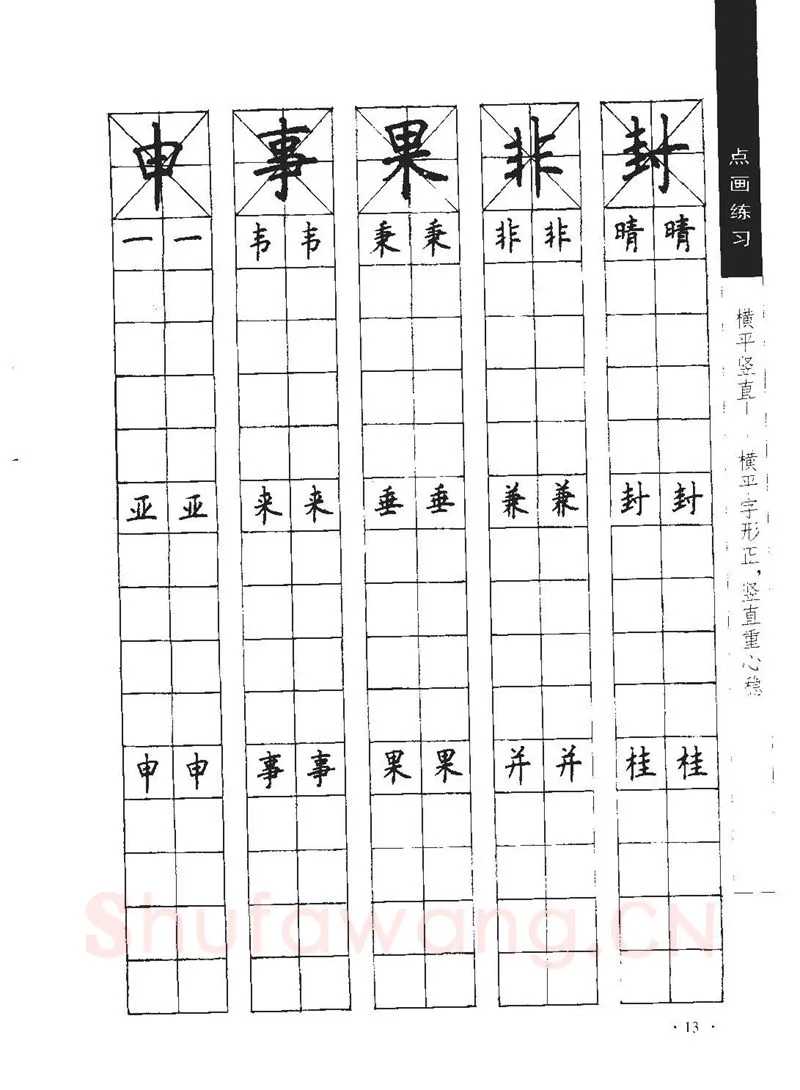 点画练习
横平竖直—横平字形正，竖直重心稳
申 事 果 非 封
一 一 韦 韦 秉 秉 非 非 晴 晴
亚 亚 来 来 垂 垂 兼 兼 封 封
申 申 事 事 果 果 并 并 桂 桂
Shufawang.CN
·13·